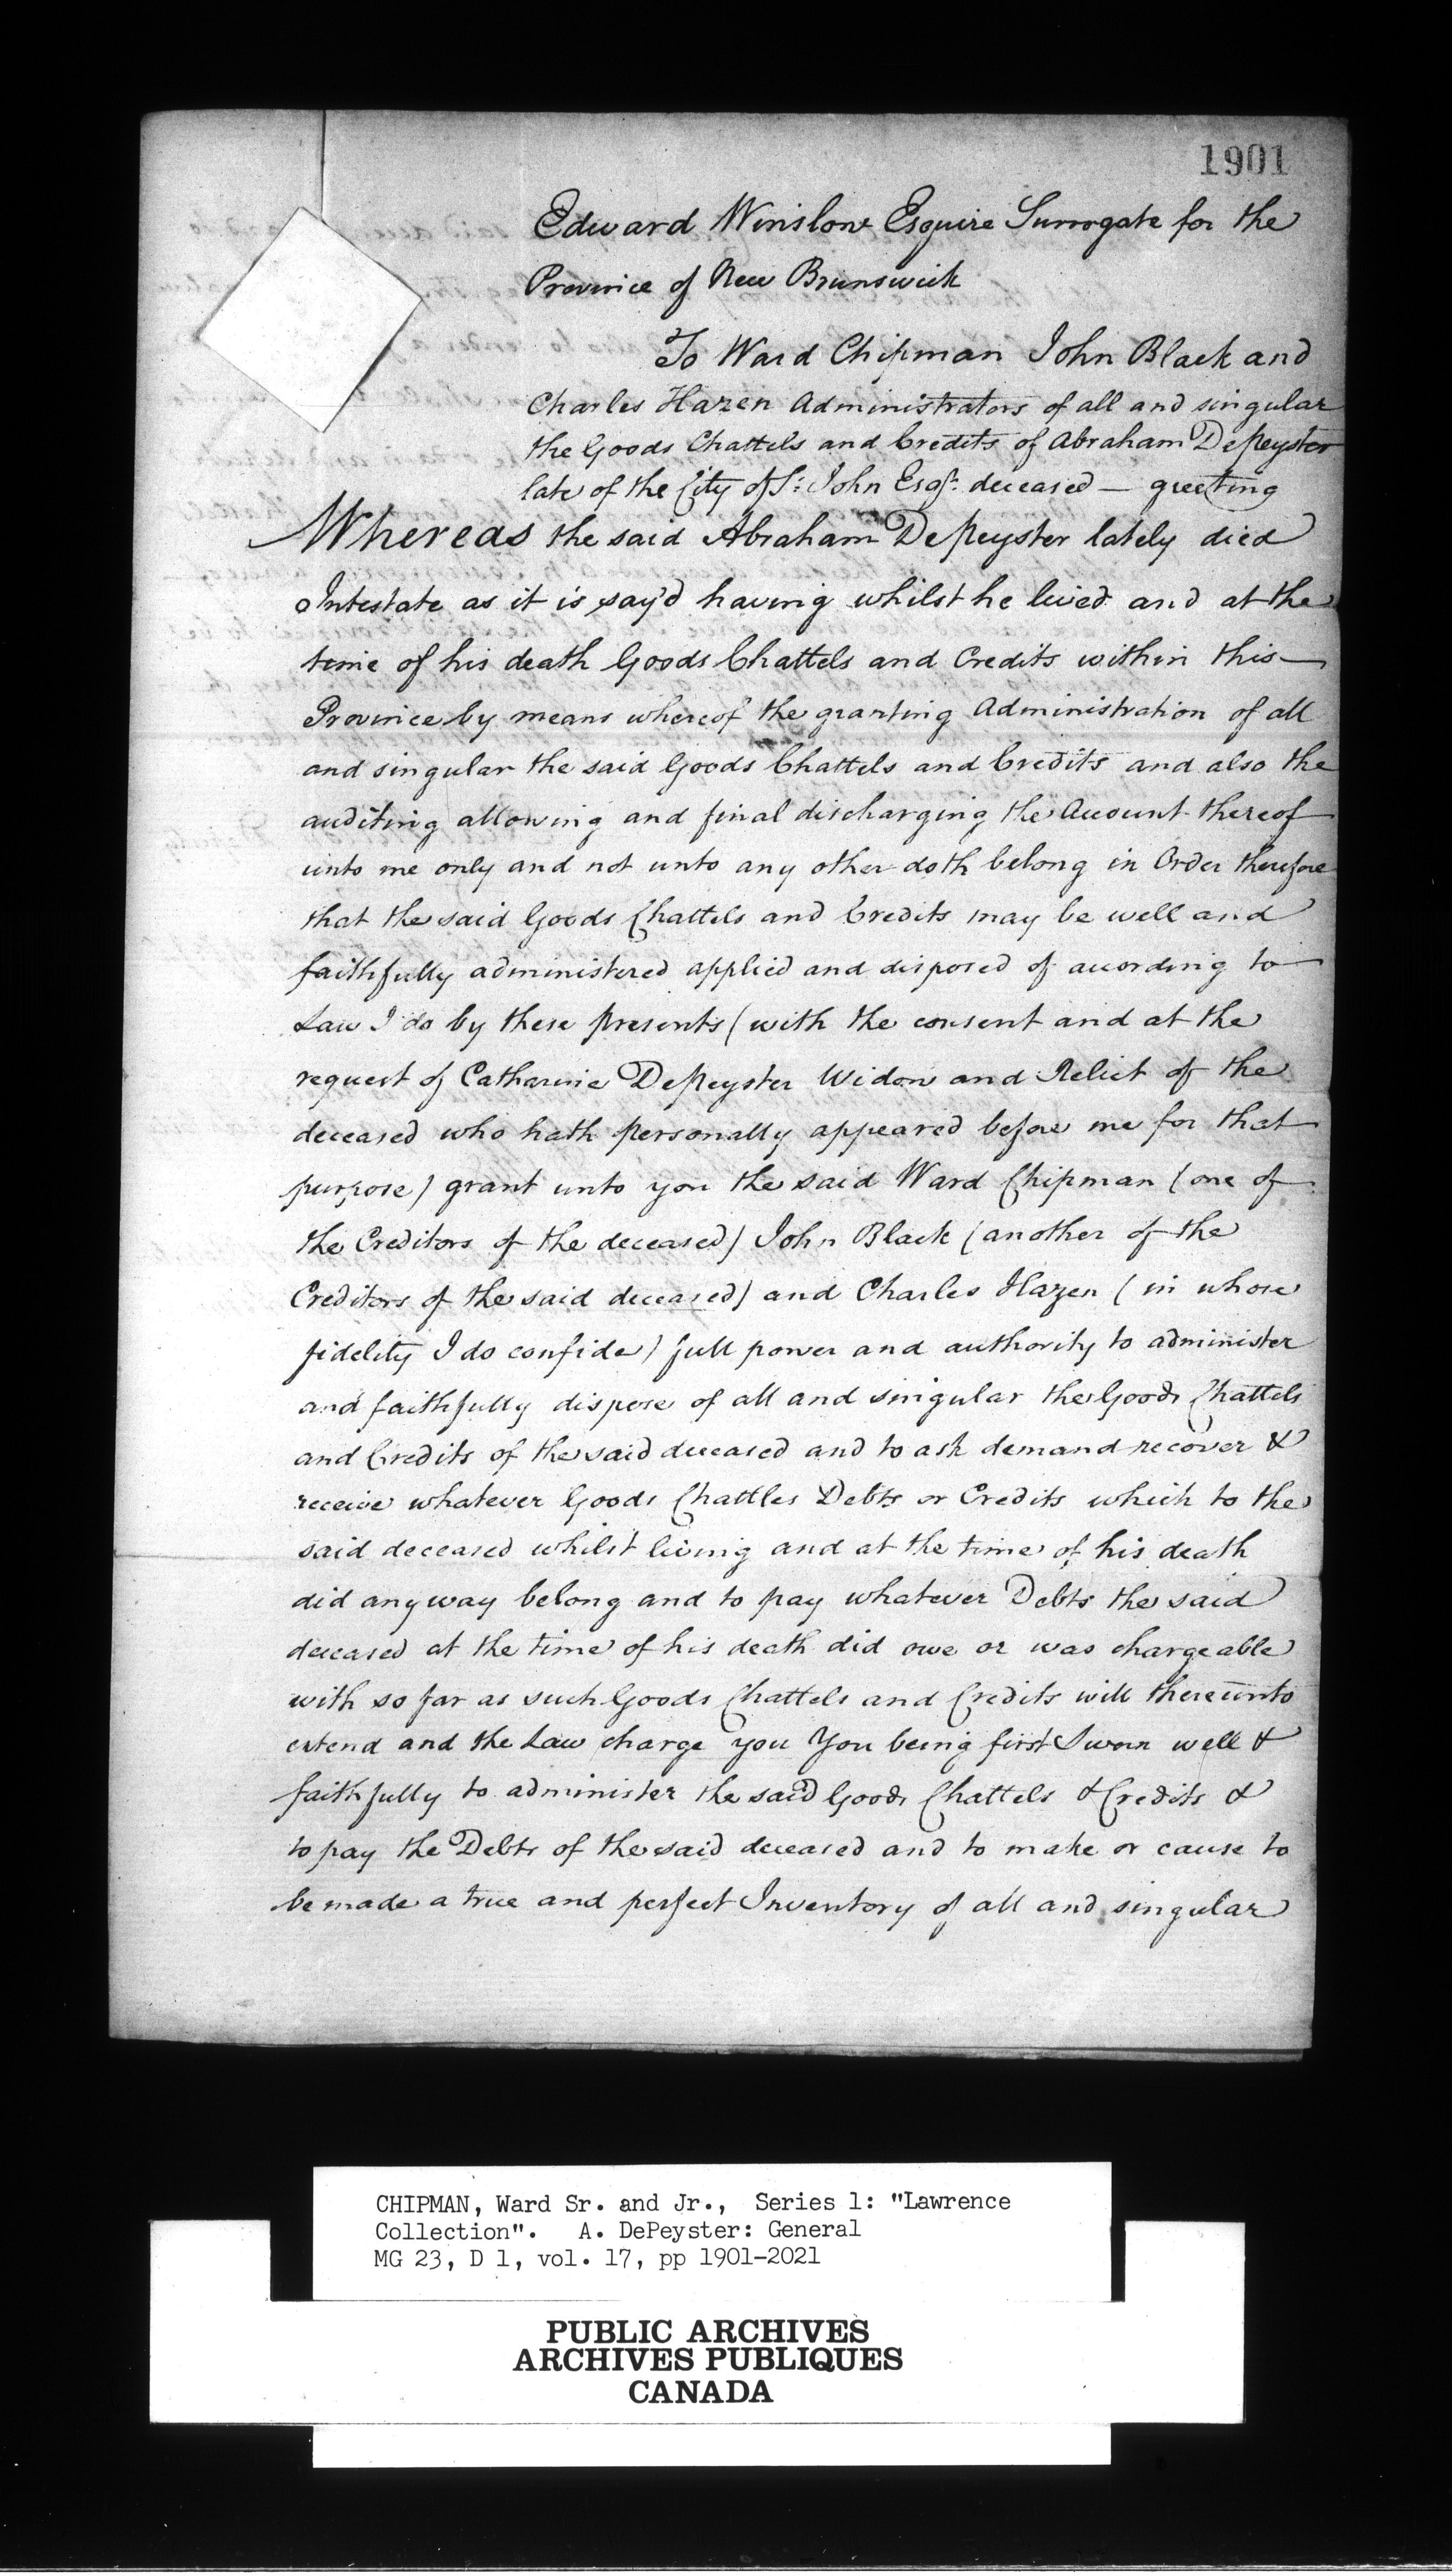 1901
Edward Winslow Esquire Surrogate for the
Province of New Brunswick
To Ward Chipman John Black and
Charles Hazen Administrators of all and singular
the Goods Chattels and Credits of Abraham DePeyster
late of the City of St: John Esqr: deceased — greeting
Whereas the said Abraham DePeyster lately died
Intestate as it is say'd having whilst he lived and at the
time of his death Goods Chattels and Credits within this
Province by means whereof the granting Administration of all
and singular the said Goods Chattels and Credits and also the
auditing allowing and final discharging the Account thereof
unto me only and not unto any other doth belong in Order therefore
that the said Goods Chattels and Credits may be well and
faithfully administered applied and disposed of according to
Law I do by these presents (with the consent and at the
request of Catharine DePeyster Widow and Relict of the
deceased who hath personally appeared before me for that
purpose) grant unto you the said Ward Chipman (one of
the Creditors of the deceased) John Black (another of the
Creditors of the said deceased) and Charles Hazen (in whose
fidelity I do confide) full power and authority to administer
and faithfully dispose of all and singular the Goods Chattels
and Credits of the said deceased and to ask demand recover &
receive whatever Goods Chattles Debts or Credits which to the
said deceased whilst living and at the time of his death
did any way belong and to pay whatever Debts the said
deceased at the time of his death did owe or was chargeable
with so far as such Goods Chattels and Credits will thereunto
extend and the Law charge you You being first Sworn well &
faithfully to administer the said Goods Chattels & Credits &
to pay the Debts of the said deceased and to make or cause to
be made a true and perfect Inventory of all and singular
CHIPMAN, Ward Sr. and Jr., Series 1: "Lawrence
Collection". A. DePeyster: General
MG 23, D 1, vol. 17, pp 1901-2021
PUBLIC ARCHIVES
ARCHIVES PUBLIQUES
CANADA